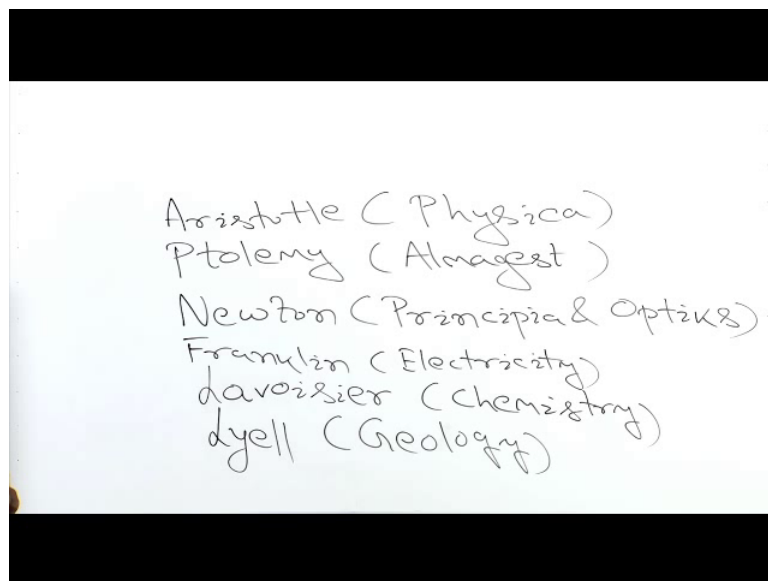 Aristotle ( Physica )
Ptolemy ( Almagest )
Newton ( Principia & Optiks )
Franklin ( Electricity )
Lavoisier ( Chemistry )
Lyell ( Geology )